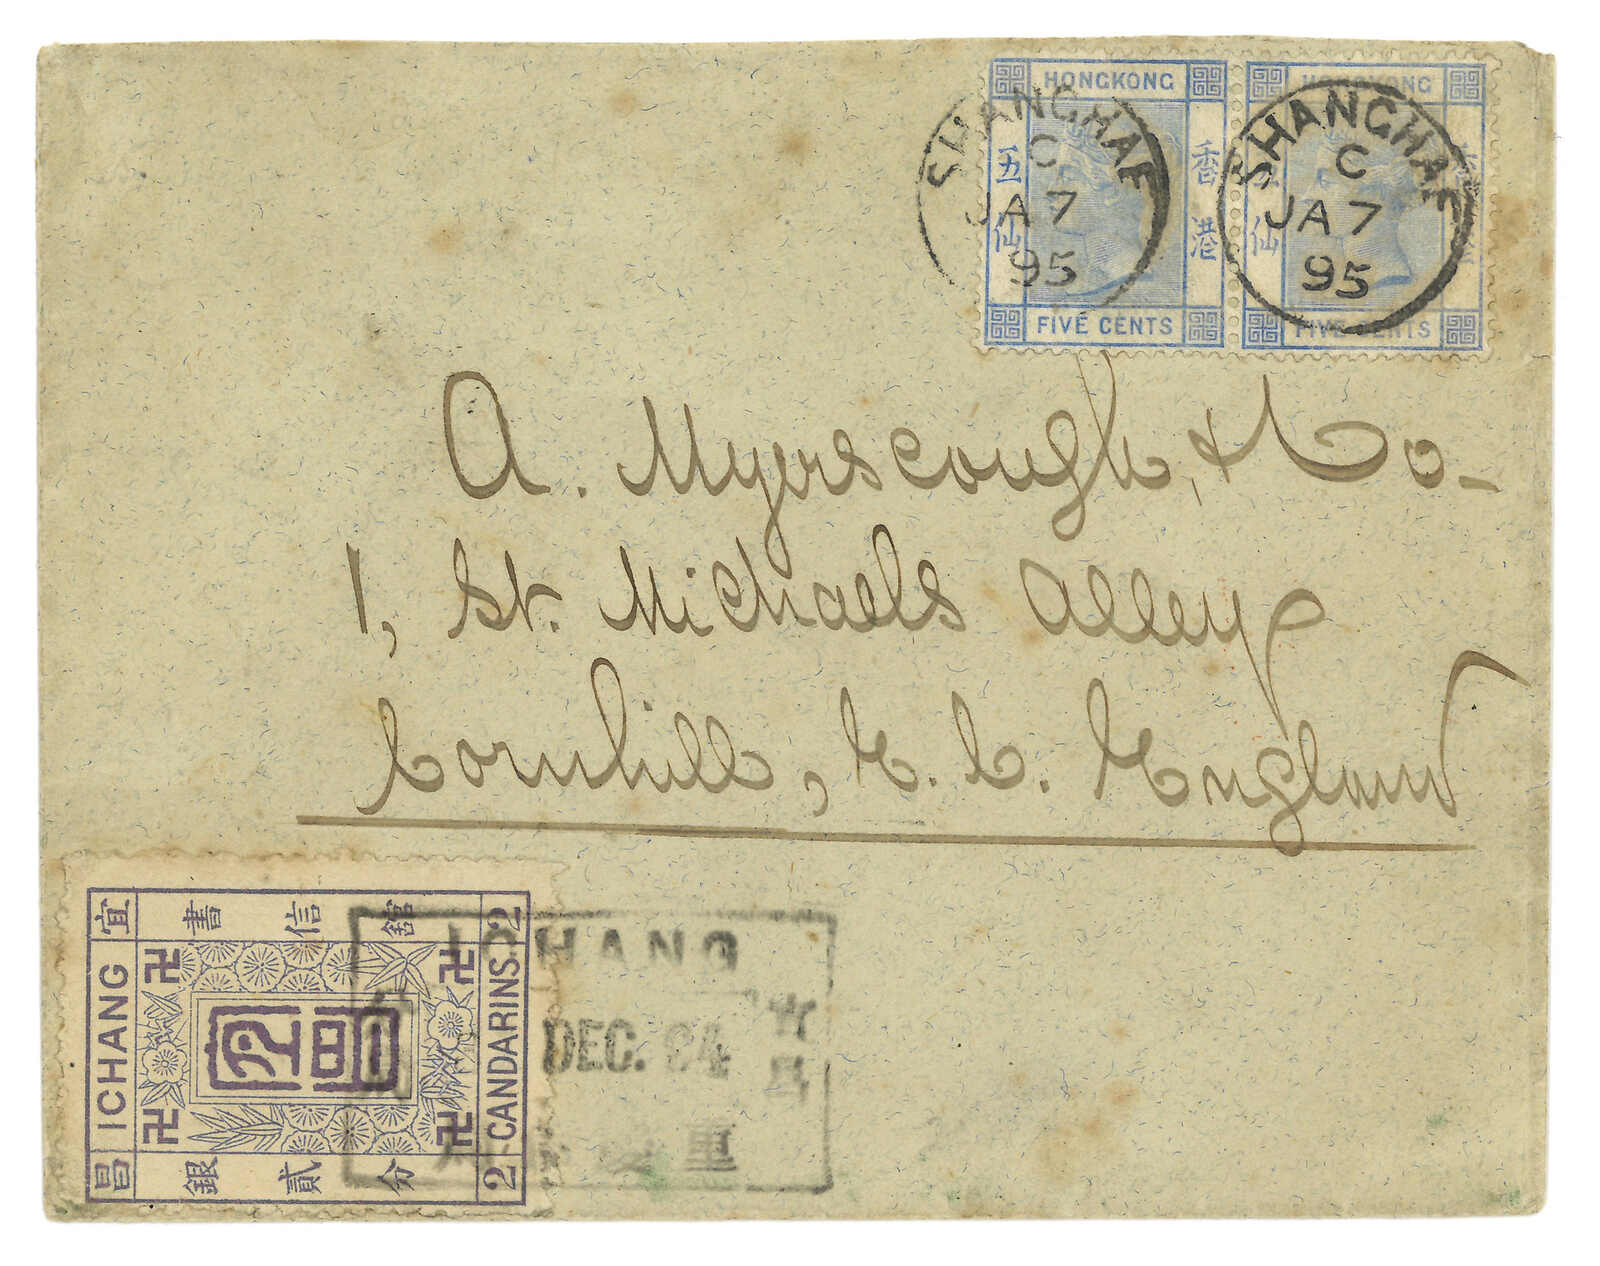 HONGKONG HONGKONG
五仙 香港
FIVE CENTS FIVE CENTS
SHANGHAE
C
JA 7
95
SHANGHAE
C
JA 7
95
A. Myerscough, & Co-
1, St. Michaels Alley
Cornhill, E. C. England
宜 書信館 2
ICHANG
2 CANDARINS.
昌 銀貳分 2
ICHANG
DEC. 94
重